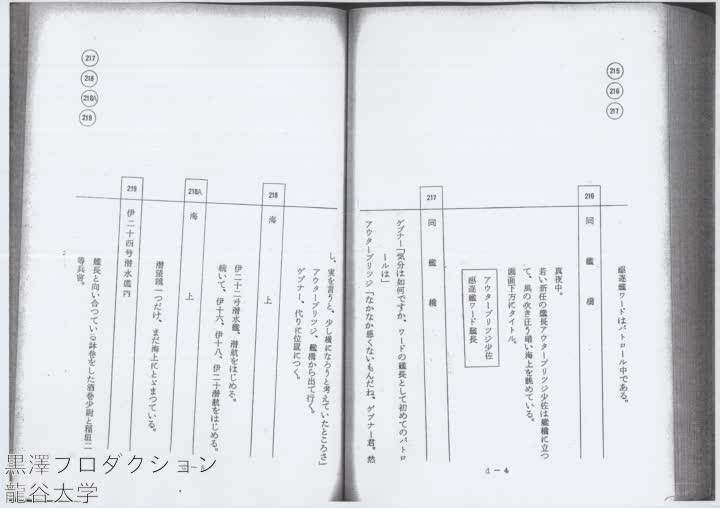 215
216
217
駆逐艦ワードはパトロール中である。
216
同 艦橋
真夜中。
若い新任の艦長アウターブリッジ少佐は艦橋に立つ
て、風の吹き荒う暗い海上を眺めている。
画面下方にタイトル。
アウターブリッジ少佐
駆逐艦ワード艦長
217
同 艦橋
ゲプナー「気分は如何ですか、ワードの艦長として初めてのパトロ
ールは」
アウターブリッジ「なかなか悪くないもんだね、ゲプナー君。然
d-4
217
218
218A
219
し、実を言うと、少し横になろうと考えていたところさ」
アウターブリッジ、艦橋から出て行く。
ゲプナー、代りに位置につく。
218
海上
伊二十二号潜水艦、潜航をはじめる。
続いて、伊十六、伊十八、伊二十潜航をはじめる。
218A
海上
潜望鏡一つだけ、まだ海上にとどまつている。
219
伊二十四号潜水艦内
艦長と向い合つている鉢巻をした酒巻少尉と稲垣二
等兵曹。
d-5
黒澤プロダクション
龍谷大学